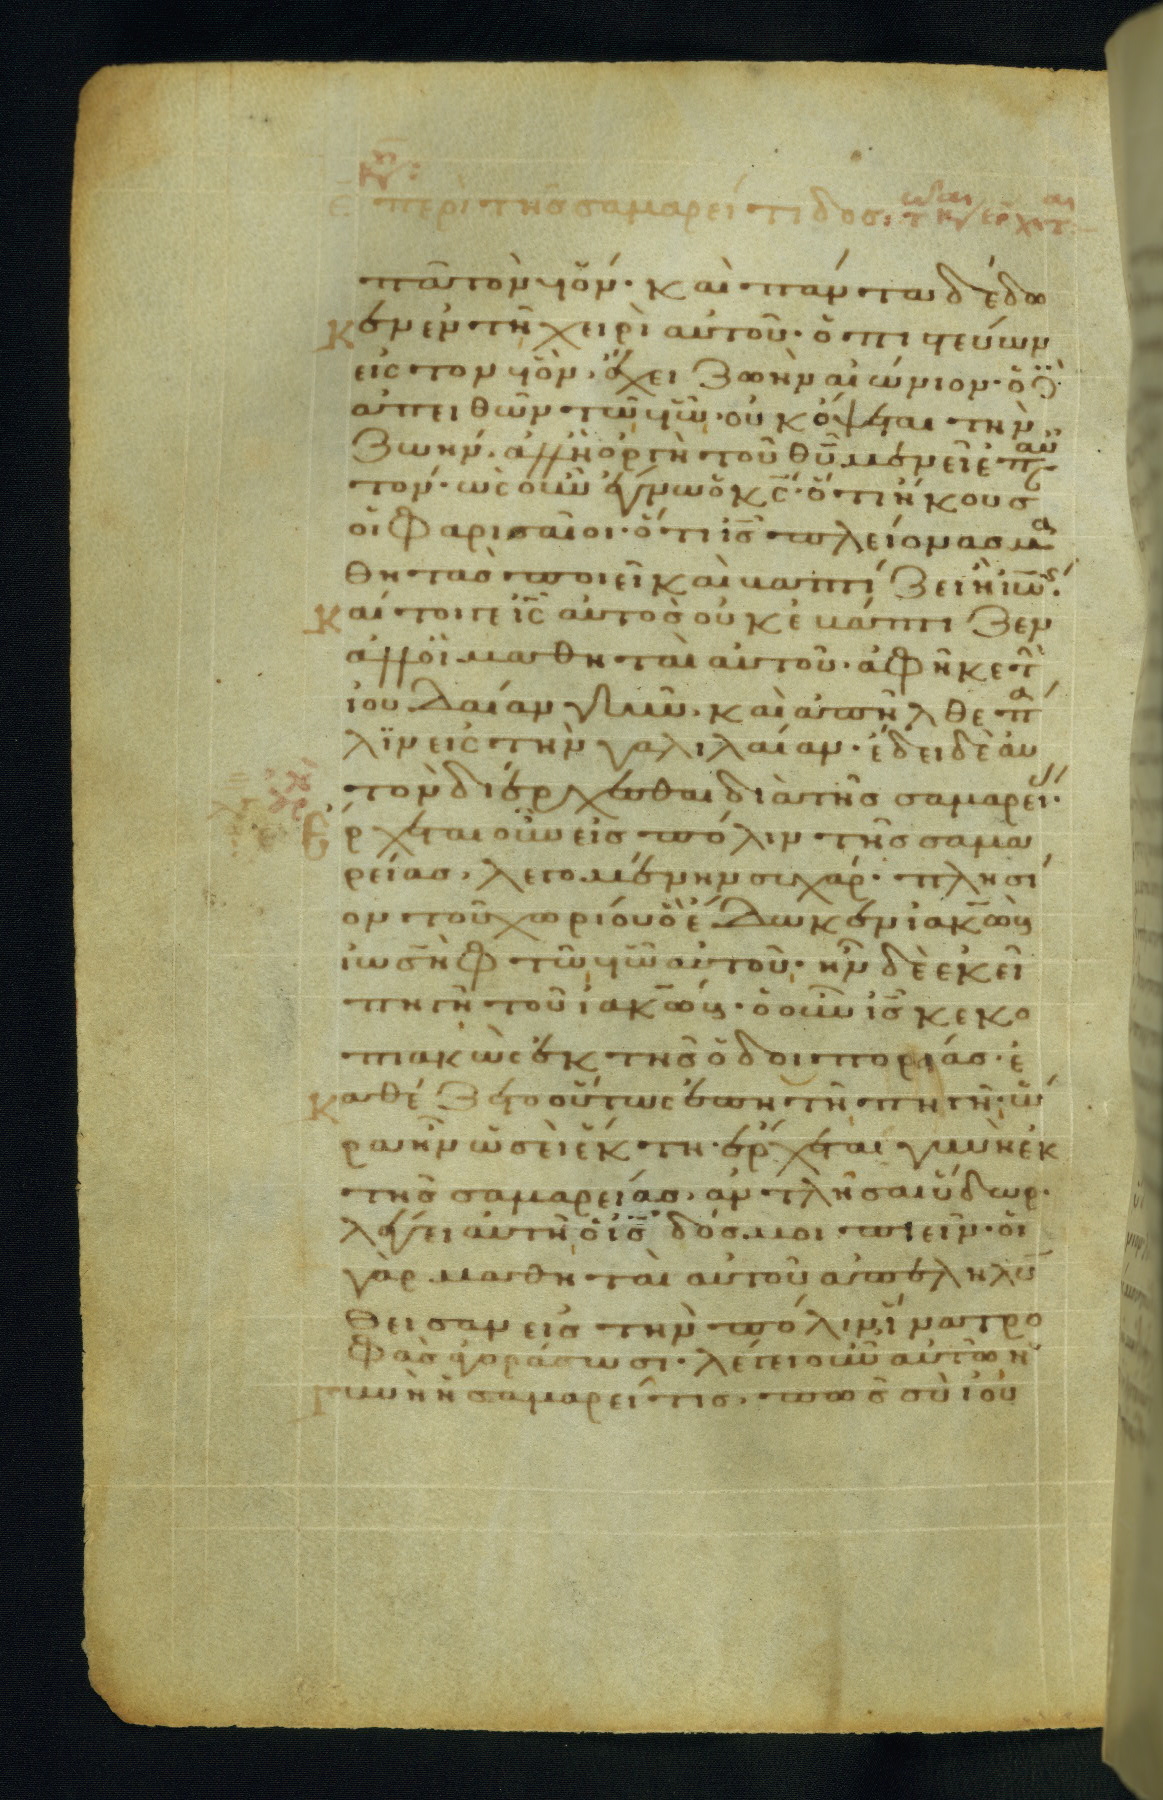 ε περὶ τῆς σαμαρείτιδος:
πᾶ τὸν υἱὸν· καὶ πάντα δέδω
κεν ἐν τῇ χειρὶ αὐτοῦ· ὁ πιστεύων
εἰς τὸν υἱὸν, ἔχει ζωὴν αἰώνιον· ὁ δὲ
ἀπειθῶν τῷ υἱῷ· οὐκ ὄψεται τὴν
ζωήν· ἀλλ' ἡ ὀργὴ τοῦ θυ μένει ἐπ αὐ
τόν· ὡς οὖν ἔγνω ὁ κς· ὅτι ἤκουσ
οἱ φαρισαῖοι· ὅτι ις πλείονας μα
θητὰς ποιεῖ καὶ βαπτίζει ἢ ιω·
καίτοιγε ις αὐτὸς οὐκ ἐβάπτιζεν
ἀλλ' οἱ μαθηταὶ αὐτοῦ· ἀφῆκε τ
ἰουδαίαν γῆν· καὶ ἀπῆλθε πά
λιν εἰς τὴν γαλιλαίαν· ἔδει δὲ αὐ
τὸν διέρχεσθαι διὰ τῆς σαμαρεί·
Ἔρχεται οὖν εἰς πόλιν τῆς σαμα
ρείας, λεγομένην συχάρ· πλησί
ον τοῦ χωρίου ὃ ἔδωκεν ἰακὼβ
ἰωσὴφ τῷ υἱῷ αὐτοῦ· ἦν δὲ ἐκεῖ
πηγὴ τοῦ ἰακώβ· ὁ οὖν ις κεκο
πιακὼς ἐκ τῆς ὁδοιπορίας· ἐ
καθέζετο οὕτως ἐπὶ τῇ πηγῇ· ὥ
ρα ἦν ὡσεὶ ἕκτη· ἔρχεται γυνὴ ἐκ
τῆς σαμαρείας, ἀντλῆσαι ὕδωρ·
λέγει αὐτῇ ὁ ις δός μοι πιεῖν· οἱ
γὰρ μαθηταὶ αὐτοῦ ἀπεληλύ
θεισαν εἰς τὴν πόλιν ἵνα τρο
φὰς ἀγοράσωσι· λέγει οὖν αὐτῷ ἡ
γυνὴ ἡ σαμαρεῖτις, πῶς σὺ ἰου